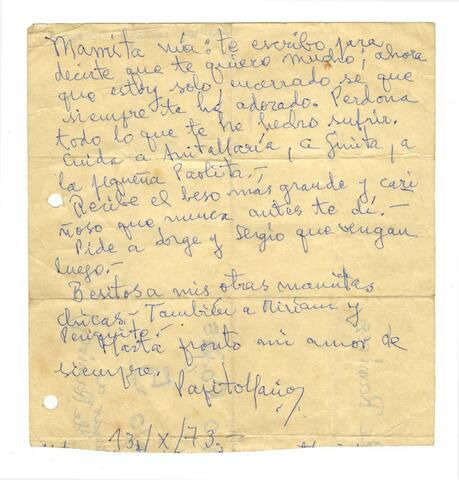 Mamita mía: te escribo para
decirte que te quiero mucho; ahora
que estoy solo, encerrado se que
siempre te he adorado. Perdona
todo lo que te he hecho sufrir.
Cuida a AnitaMaría, a Ginita, a
la pequeña Paolita.-
Recibe el beso más grande y cari
ñoso que nunca antes te dí.-
Pide a Jorge y Sergio que vengan
luego.-
Besitos a mis otras mamitas
chicas.- También a Miriam y
Periquito.-
Hasta pronto mi amor de
siempre.
13/X/73.-